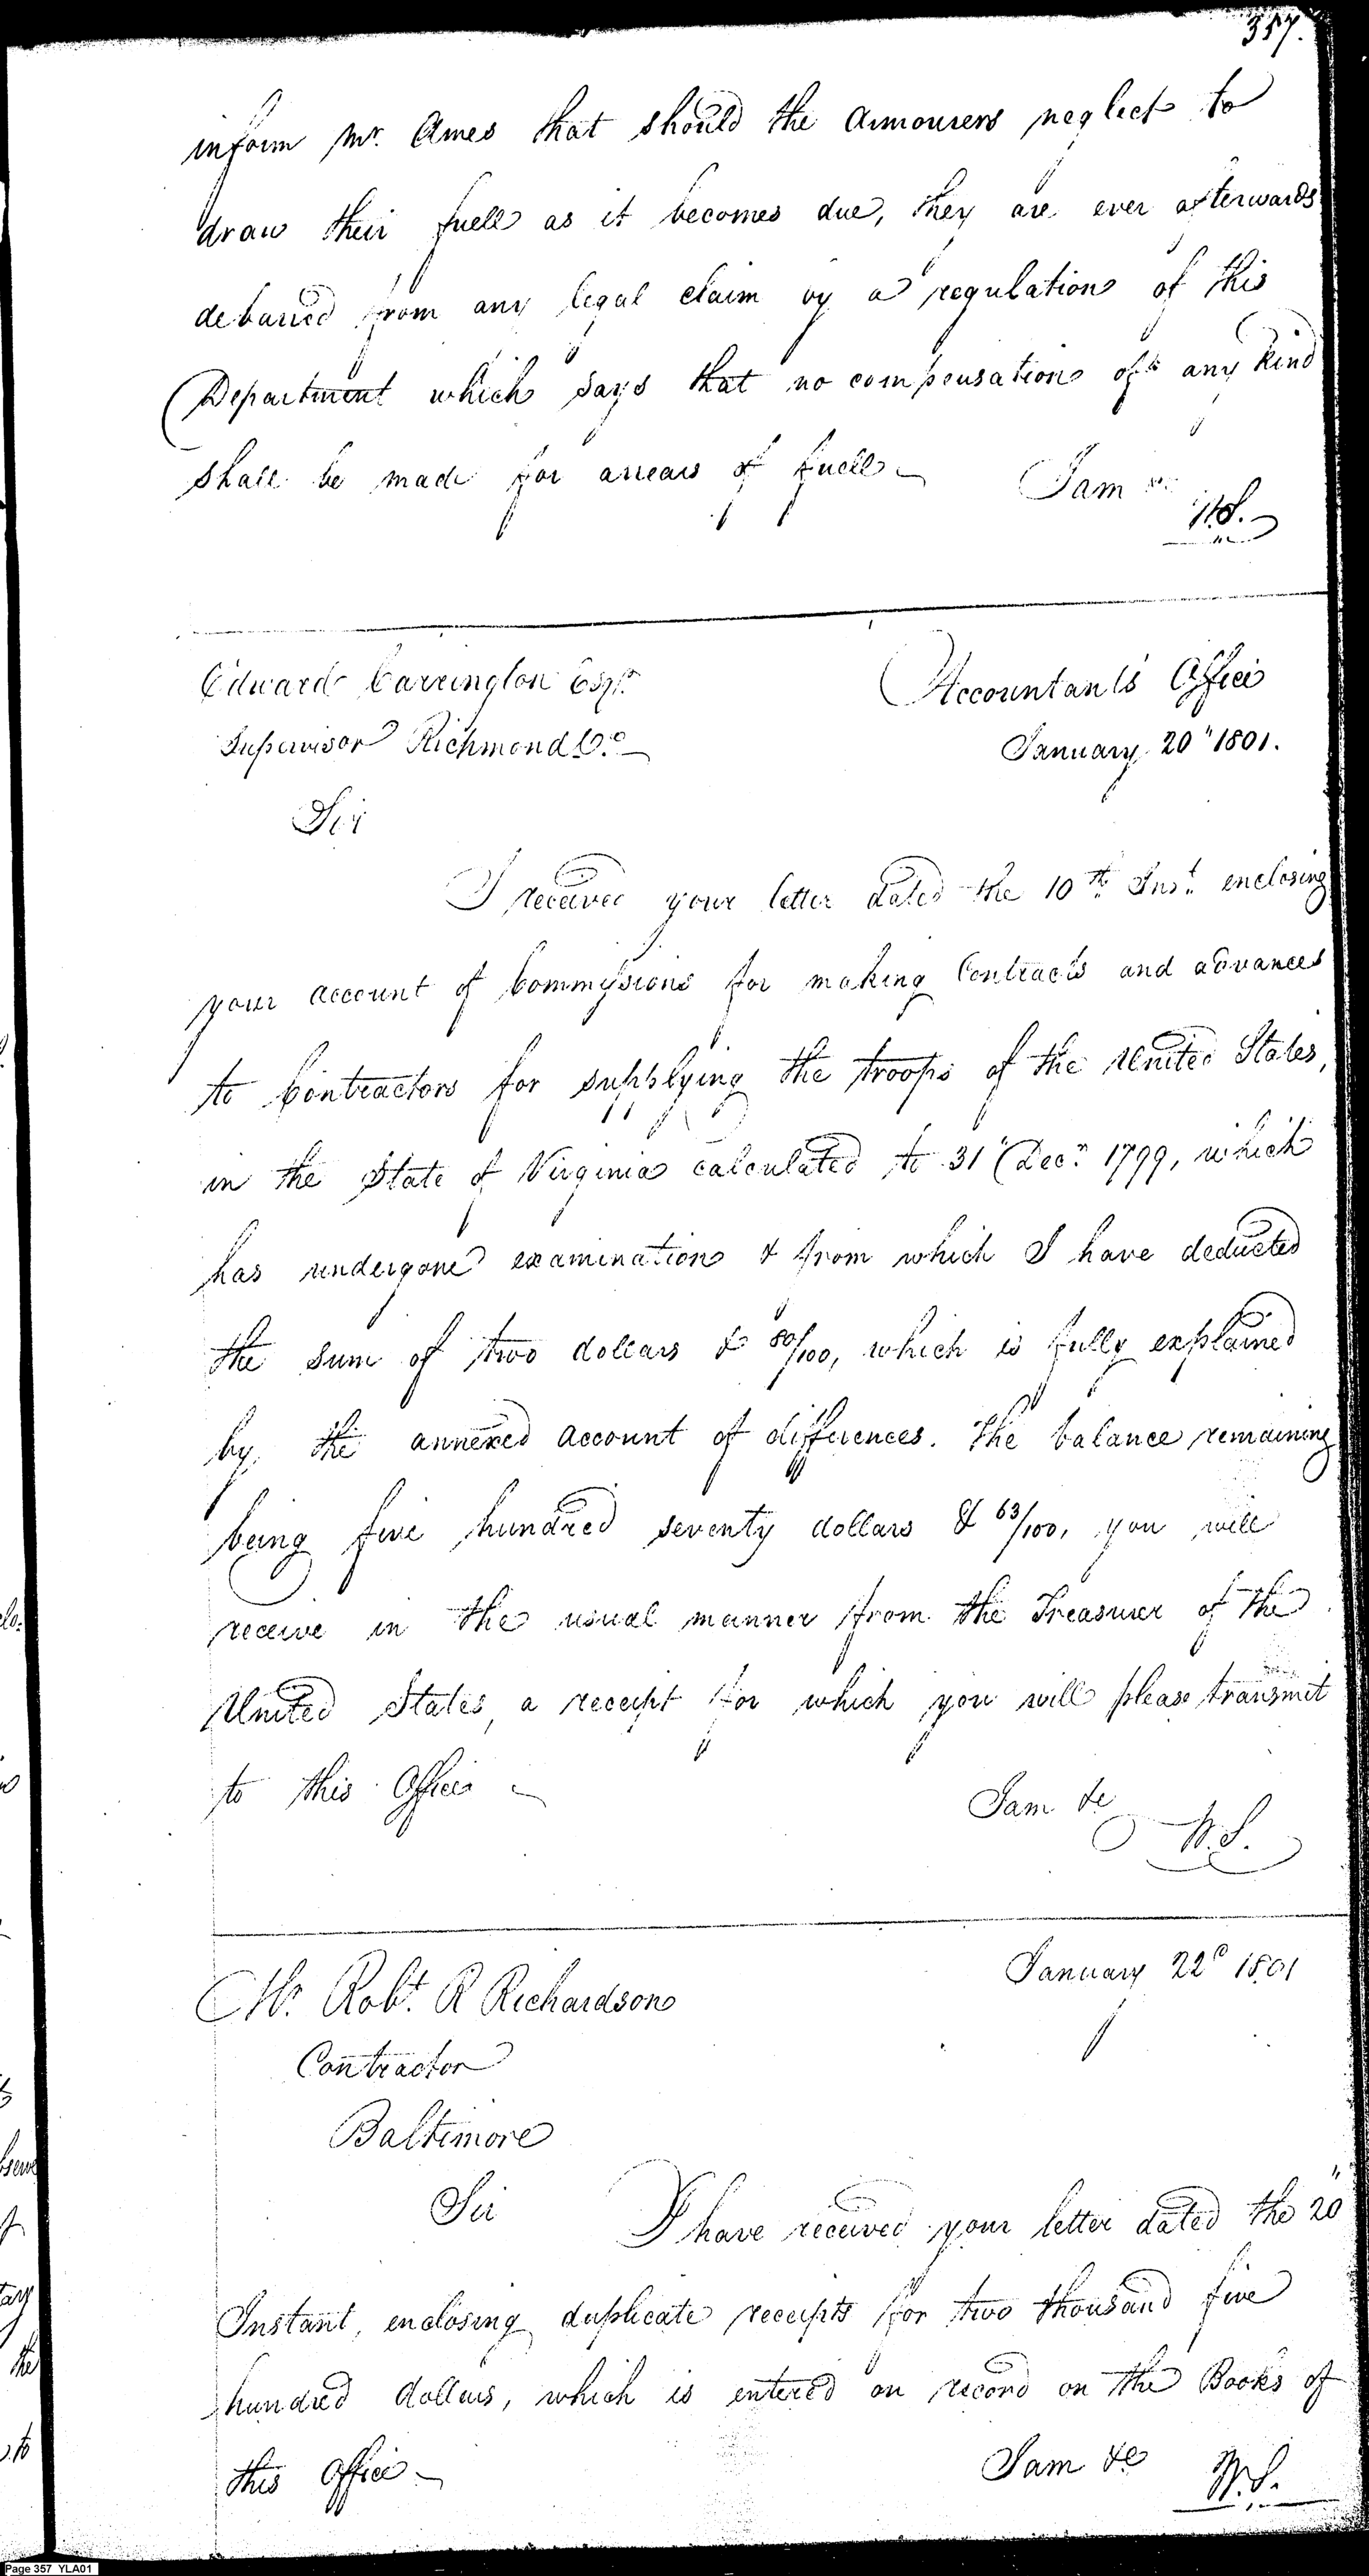 357.
inform Mr. Ames that should the Armourers neglect to
draw their fuell as it becomes due, they are ever afterwards
debarred from any legal claim by a regulation of this
Department which says that no compensation of any kind
shall be made for arrears of fuell
I am &c
W.S.
Edward Carrington Esqr.
Supervisor Richmond Va.
Accountants Office
January 20" 1801.
Sir
I received your letter dated the 10th. Inst. enclosing
your account of Commissions for making Contracts and advances
to Contractors for supplying the troops of the United States,
in the State of Virginia calculated to 31" Decr. 1799, which
has undergone examination & from which I have deducted
the sum of two dollars & 80/100, which is fully explained
by the annexed account of differences. The balance remaining
being five hundred seventy dollars & 63/100, you will
receive in the usual manner from the Treasurer of the
United States, a receipt for which you will please transmit
to this Office
I am &c
W.S.
Mr. Robt. R Richardson
January 22d 1801
Contractor
Baltimore
Sir
I have received your letter dated the 20"
Instant, enclosing duplicate receipts for two thousand five
hundred dollars, which is entered on record on the Books of
this Office
I am &c
W.S.
Page 357 YLA01